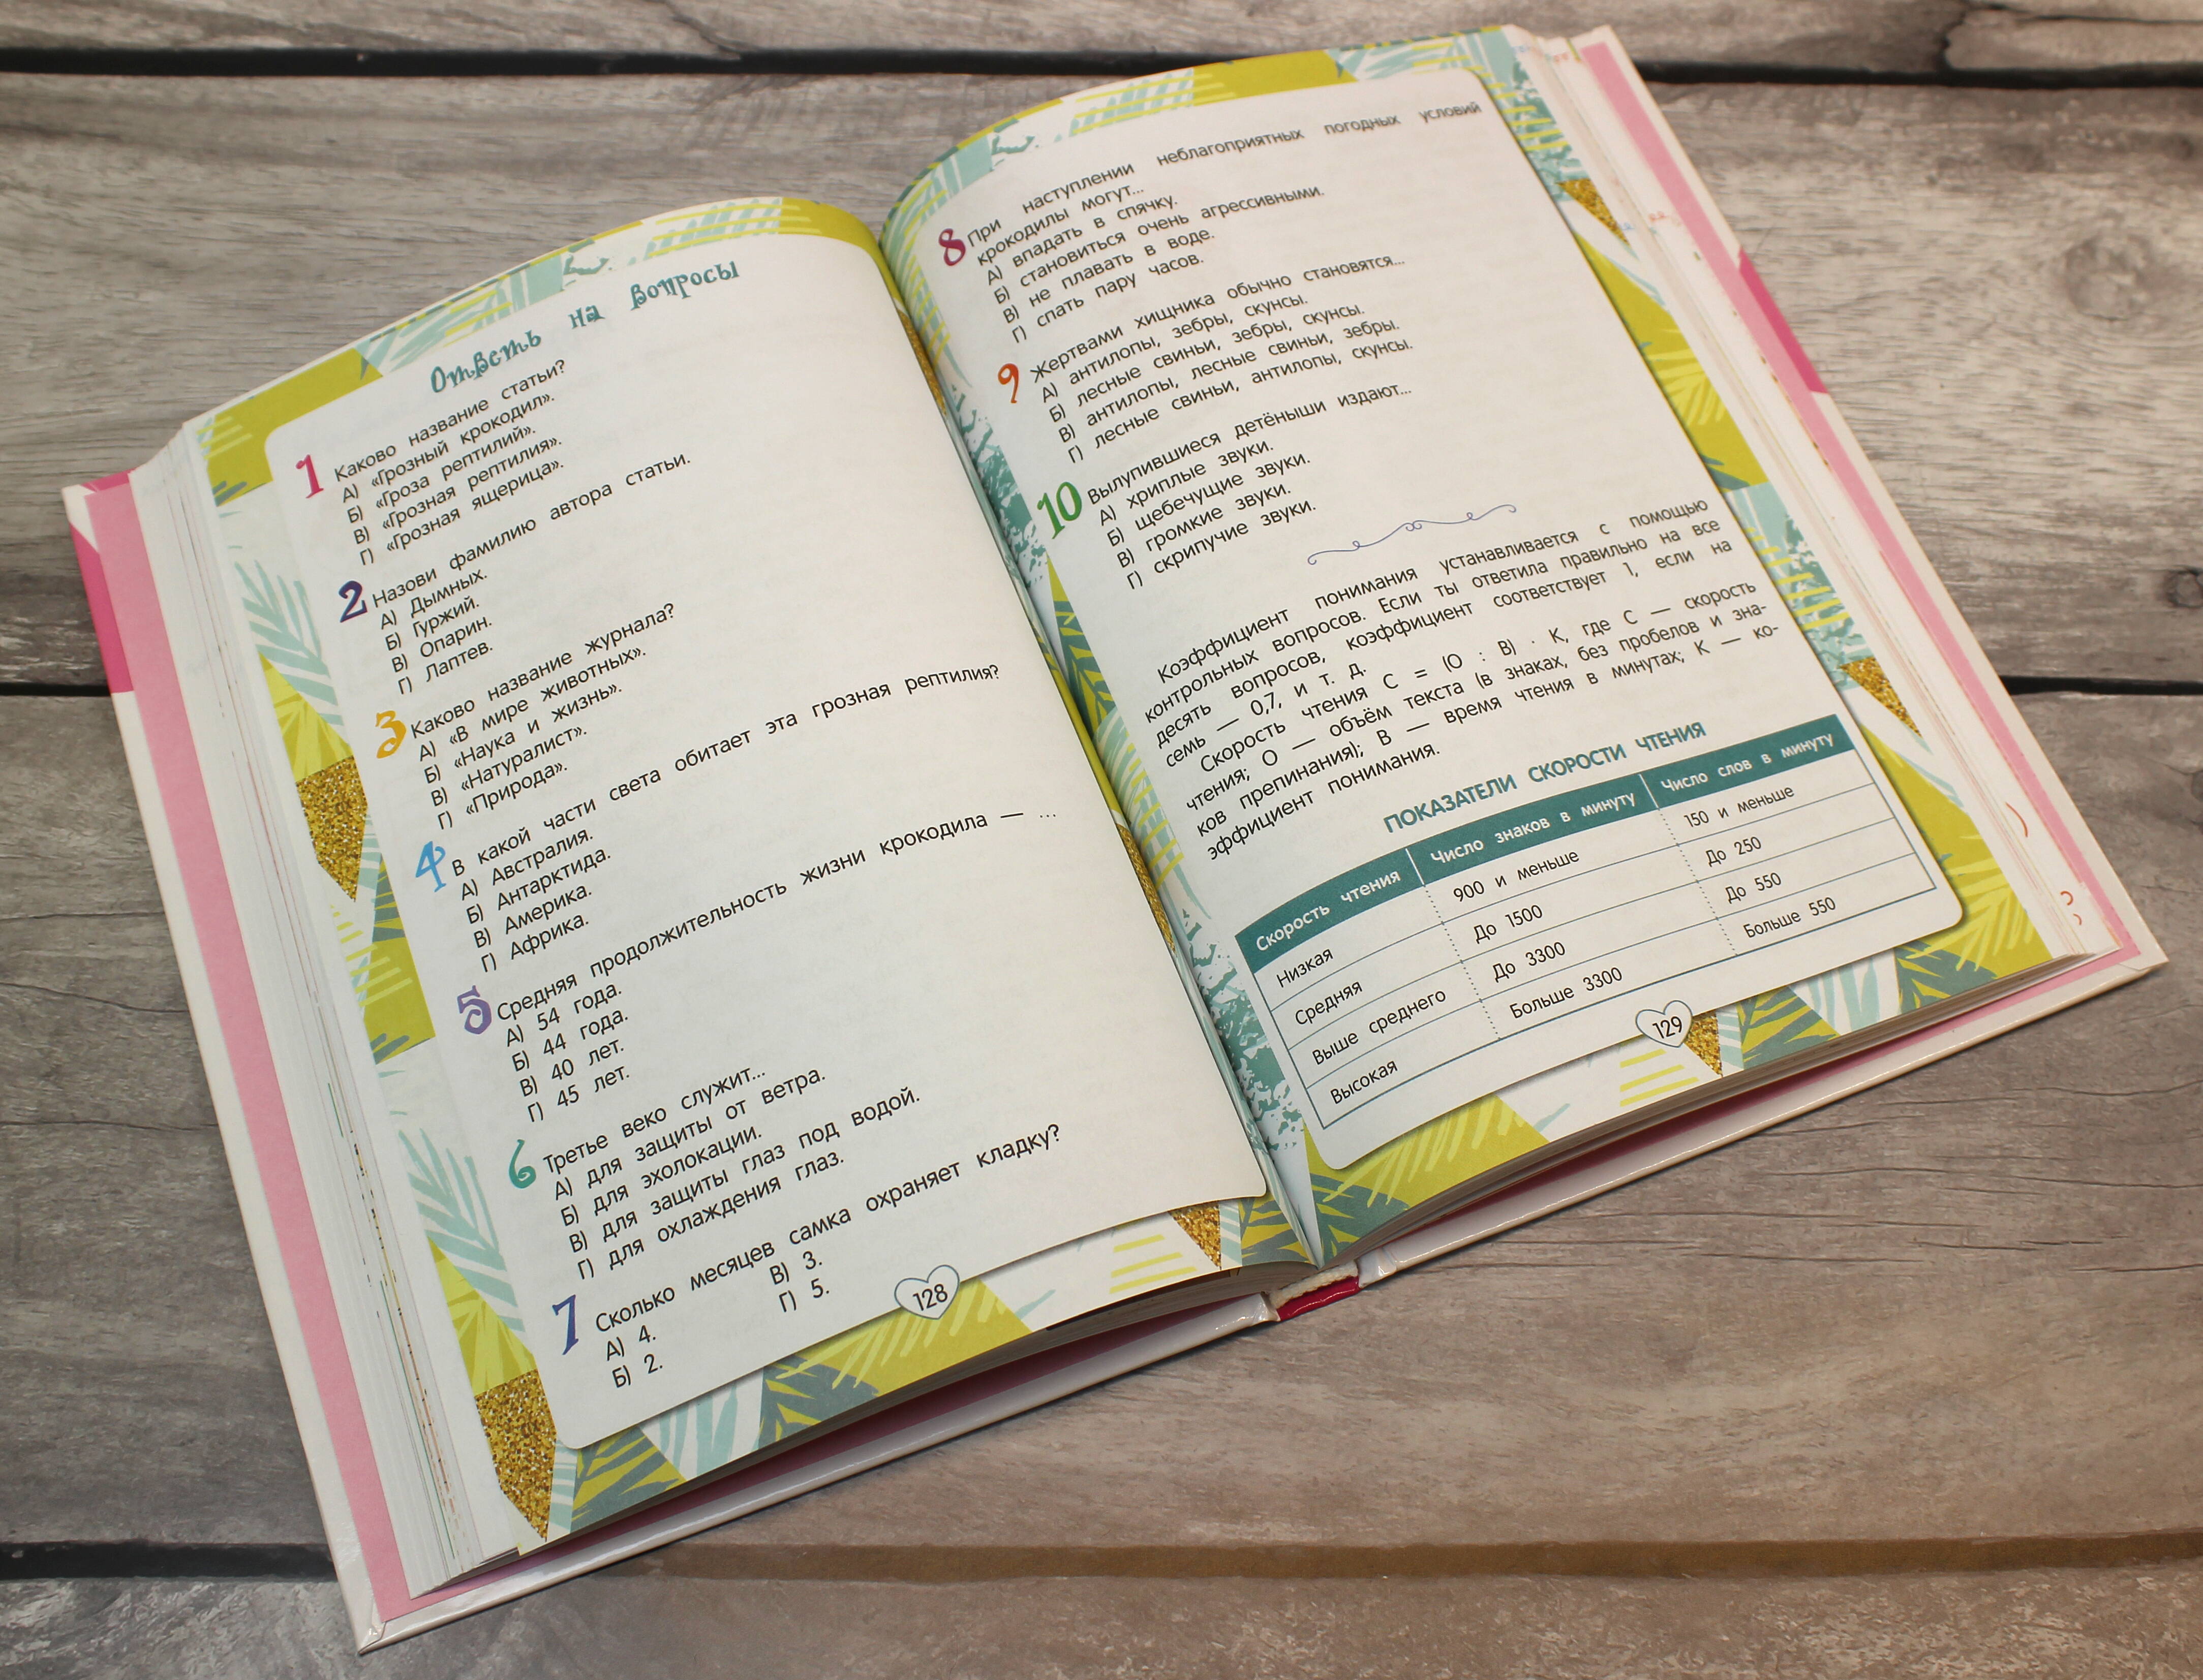 Ответь на вопросы
1 Каково название статьи?
А) «Грозный крокодил».
Б) «Гроза рептилий».
В) «Грозная рептилия».
Г) «Грозная ящерица».
2 Назови фамилию автора статьи.
А) Дымных.
Б) Гуржий.
В) Опарин.
Г) Лаптев.
3 Каково название журнала?
А) «В мире животных».
Б) «Наука и жизнь».
В) «Натуралист».
Г) «Природа».
4 В какой части света обитает эта грозная рептилия?
А) Австралия.
Б) Антарктида.
В) Америка.
Г) Африка.
5 Средняя продолжительность жизни крокодила — ...
А) 54 года.
Б) 44 года.
В) 40 лет.
Г) 45 лет.
6 Третье веко служит...
А) для защиты от ветра.
Б) для эхолокации.
В) для защиты глаз под водой.
Г) для охлаждения глаз.
7 Сколько месяцев самка охраняет кладку?
А) 4. В) 3.
Б) 2. Г) 5.
128
8 При наступлении неблагоприятных погодных условий
крокодилы могут...
А) впадать в спячку.
Б) становиться очень агрессивными.
В) не плавать в воде.
Г) спать пару часов.
9 Жертвами хищника обычно становятся...
А) антилопы, зебры, скунсы.
Б) лесные свиньи, зебры, скунсы.
В) антилопы, лесные свиньи, зебры.
Г) лесные свиньи, антилопы, скунсы.
10 Вылупившиеся детёныши издают...
А) хриплые звуки.
Б) щебечущие звуки.
В) громкие звуки.
Г) скрипучие звуки.
Коэффициент понимания устанавливается с помощью
контрольных вопросов. Если ты ответила правильно на все
десять вопросов, коэффициент соответствует 1, если на
семь — 0,7, и т. д.
Скорость чтения С = (О : В) · К, где С — скорость
чтения; О — объём текста (в знаках, без пробелов и зна-
ков препинания); В — время чтения в минутах; К — ко-
эффициент понимания.
ПОКАЗАТЕЛИ СКОРОСТИ ЧТЕНИЯ
Скорость чтения Число знаков в минуту Число слов в минуту
Низкая 900 и меньше 150 и меньше
Средняя До 1500 До 250
Выше среднего До 3300 До 550
Высокая Больше 3300 Больше 550
129